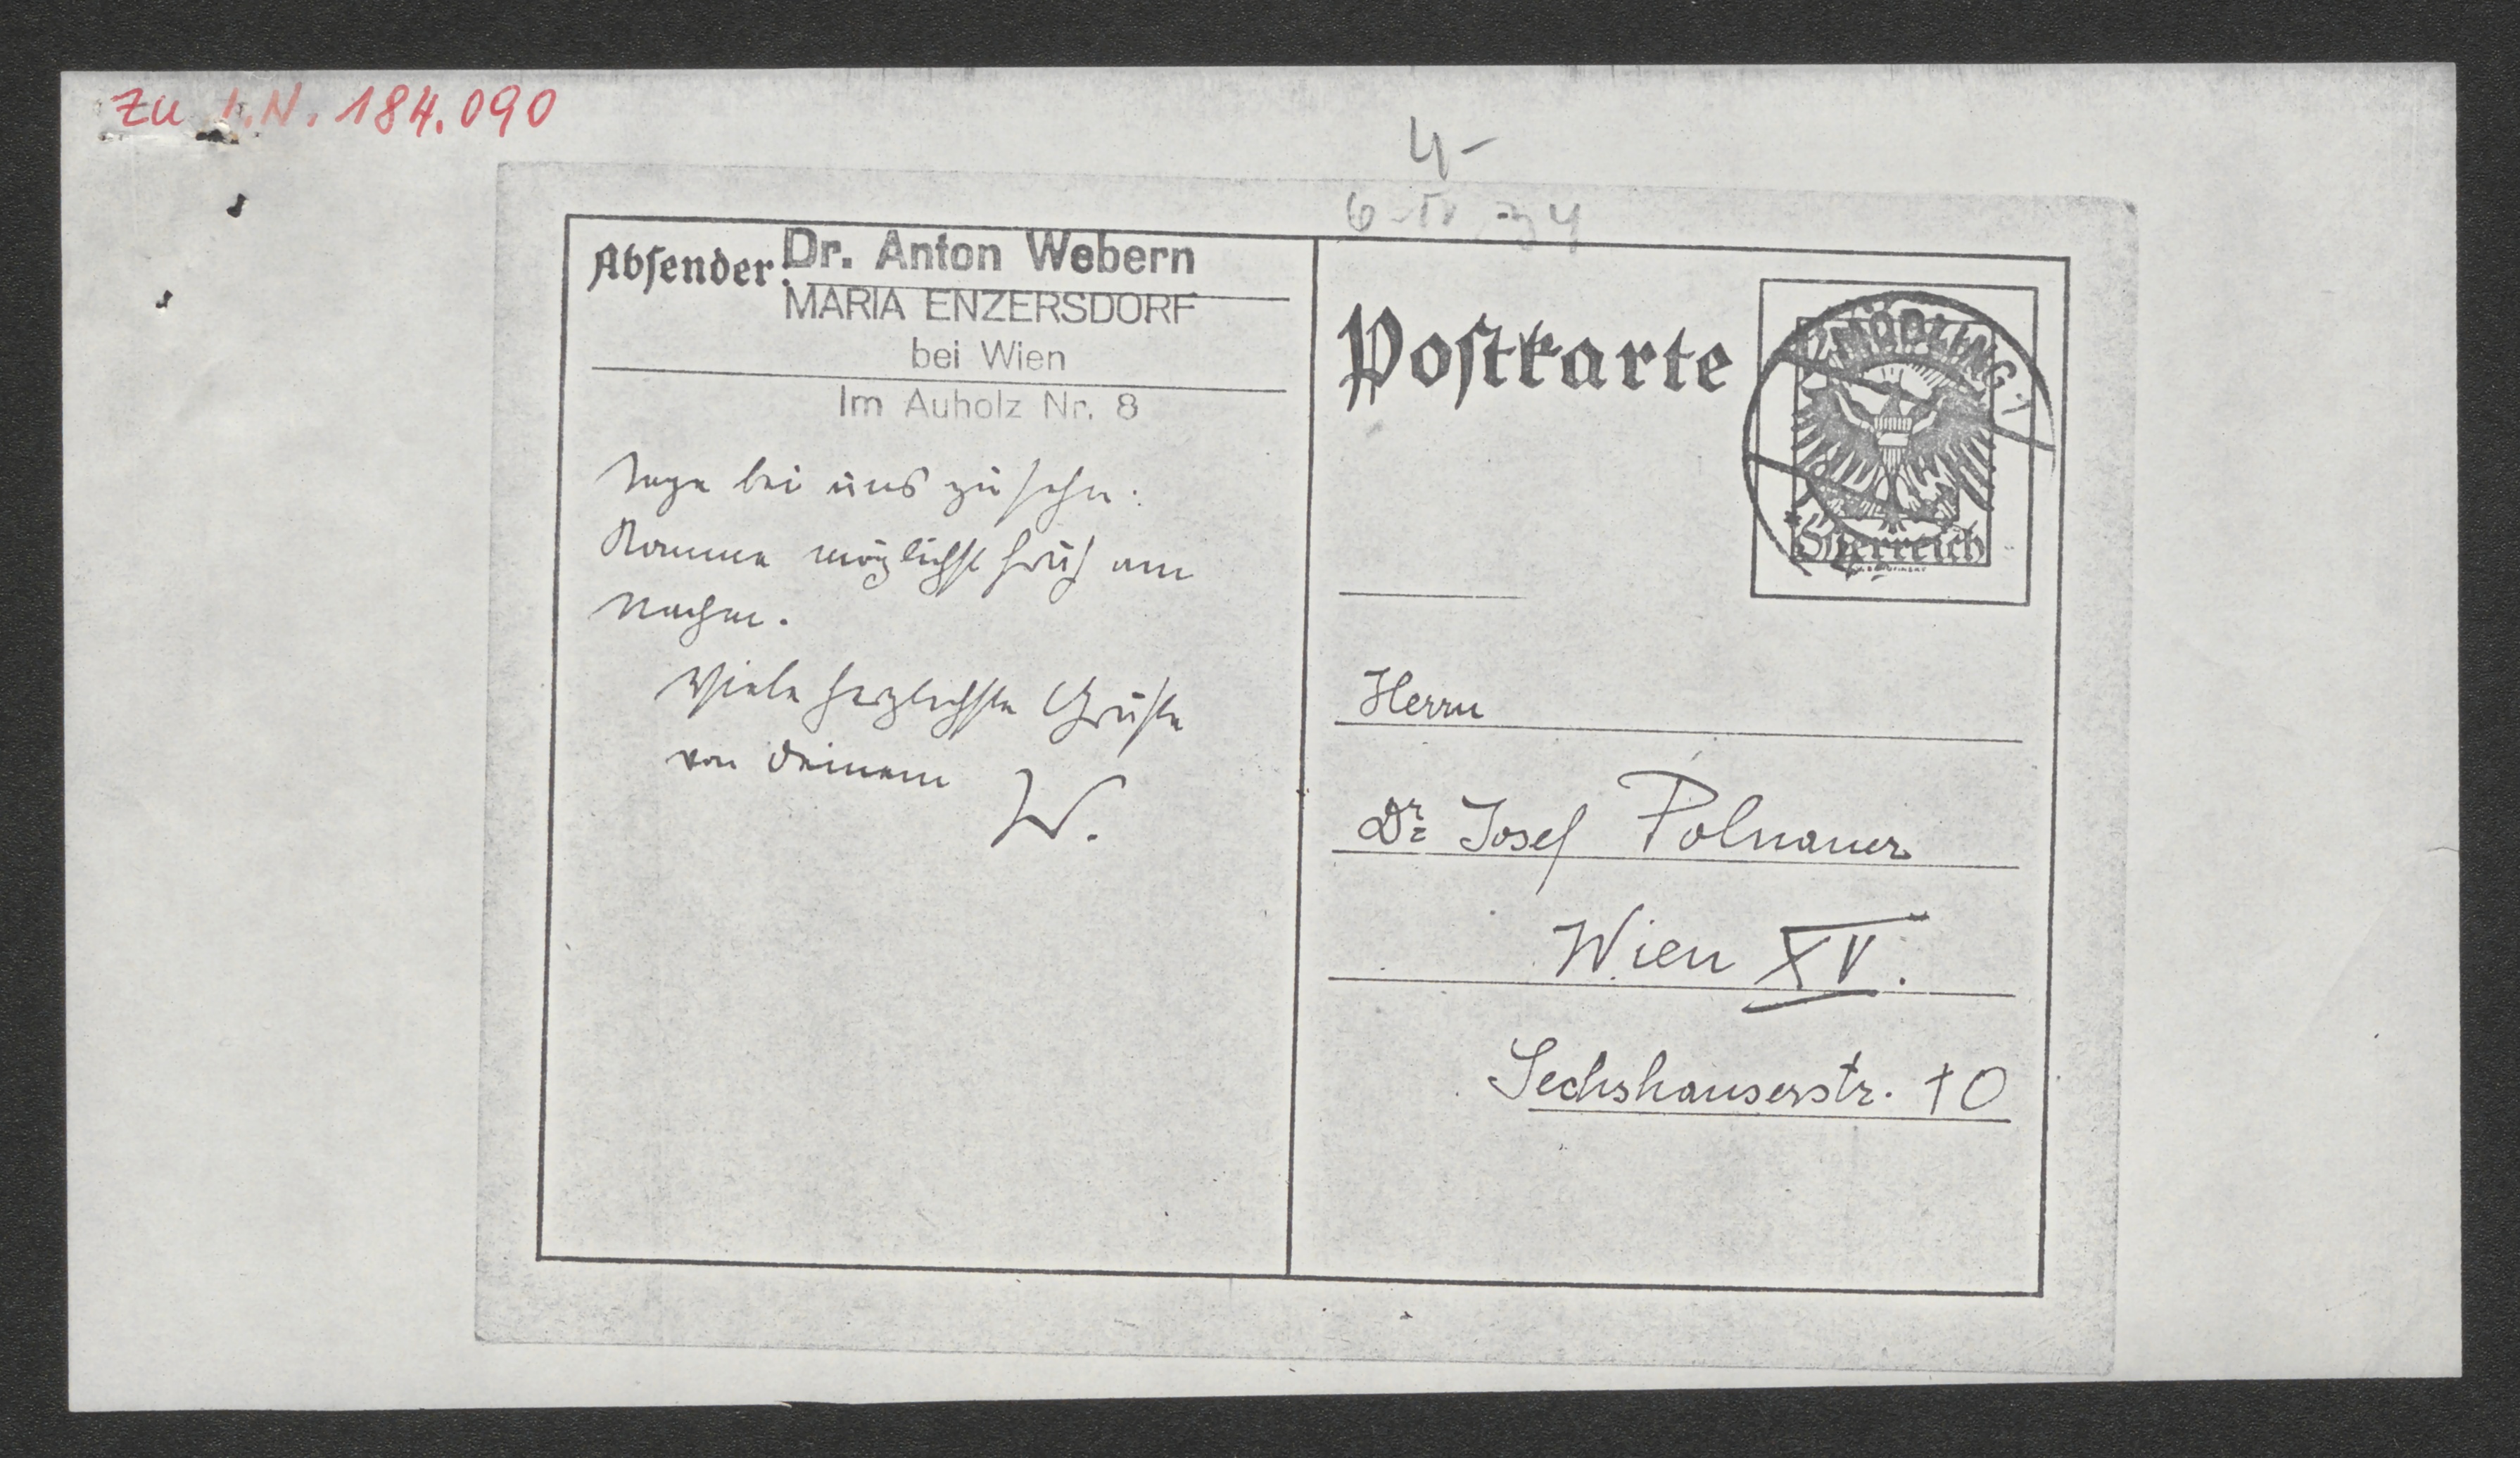 Zu I.N. 184.090
4-
6 IV 34
Absender: Dr. Anton Webern
MARIA ENZERSDORF
bei Wien
Im Auholz Nr. 8
Tage bei uns zu sehn.
Komme möglichst früh am
Nachm.
Viele herzlichste Grüße
von Deinem
W.
Postkarte
MÖDLING 1
Österreich
Herrn
Dr Josef Polnauer
Wien XV.
Sechshauserstr. 10